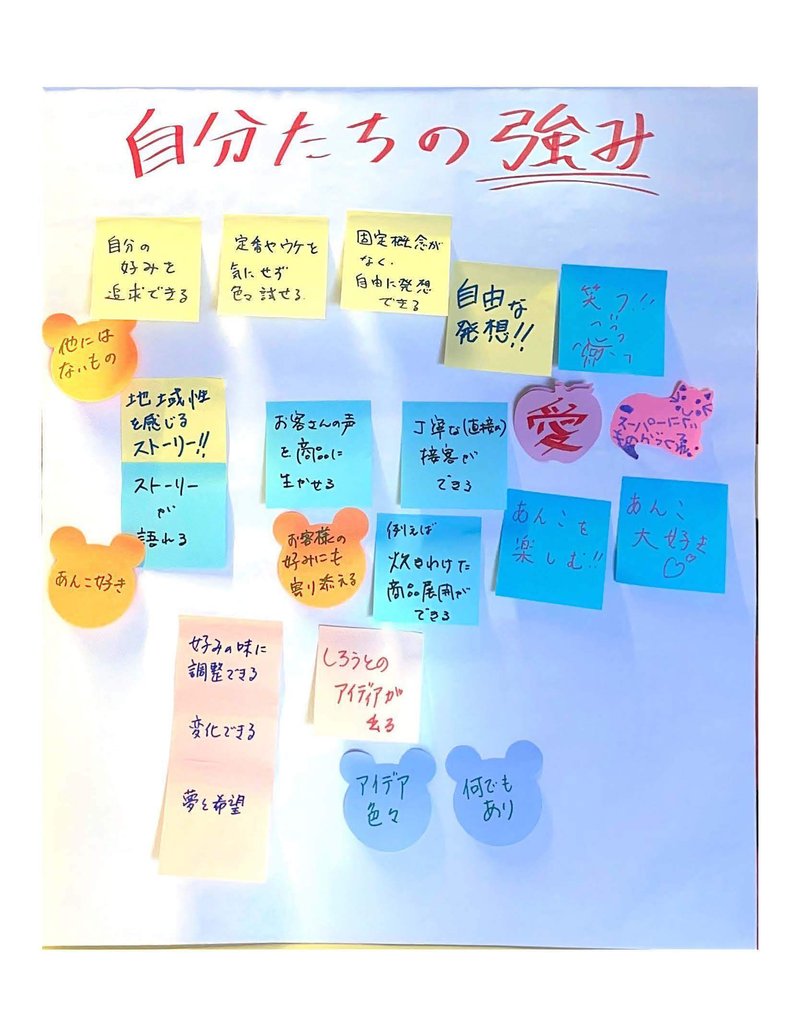 自分たちの強み
自分の
好みを
追求できる
定番やウケを
気にせず
色々試せる
固定概念が
なく、
自由に発想
できる
自由な
発想!!
笑う!!
他には
ないもの
地域性
を感じる
ストーリー!!
ストーリー
が
語れる
お客さんの声
を商品に
生かせる
丁寧な(直接の)
接客が
できる
愛
スーパーにない
あんこ好き
お客様の
好みにも
寄り添える
例えば
炊きわけた
商品展開が
できる
あんこを
楽しむ!!
あんこ
大好き
♡
好みの味に
調整できる
変化できる
夢と希望
しろうとの
アイディアが
出る
アイデア
色々
何でも
あり